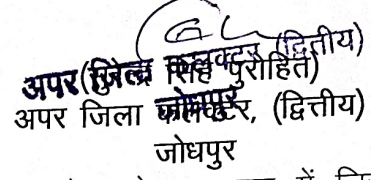 अपर जिला कलक्टर (द्वितीय)
जोधपुर
सिंह पुरोहित)
अपर जिला कलक्टर, (द्वित्तीय)
जोधपुर
में